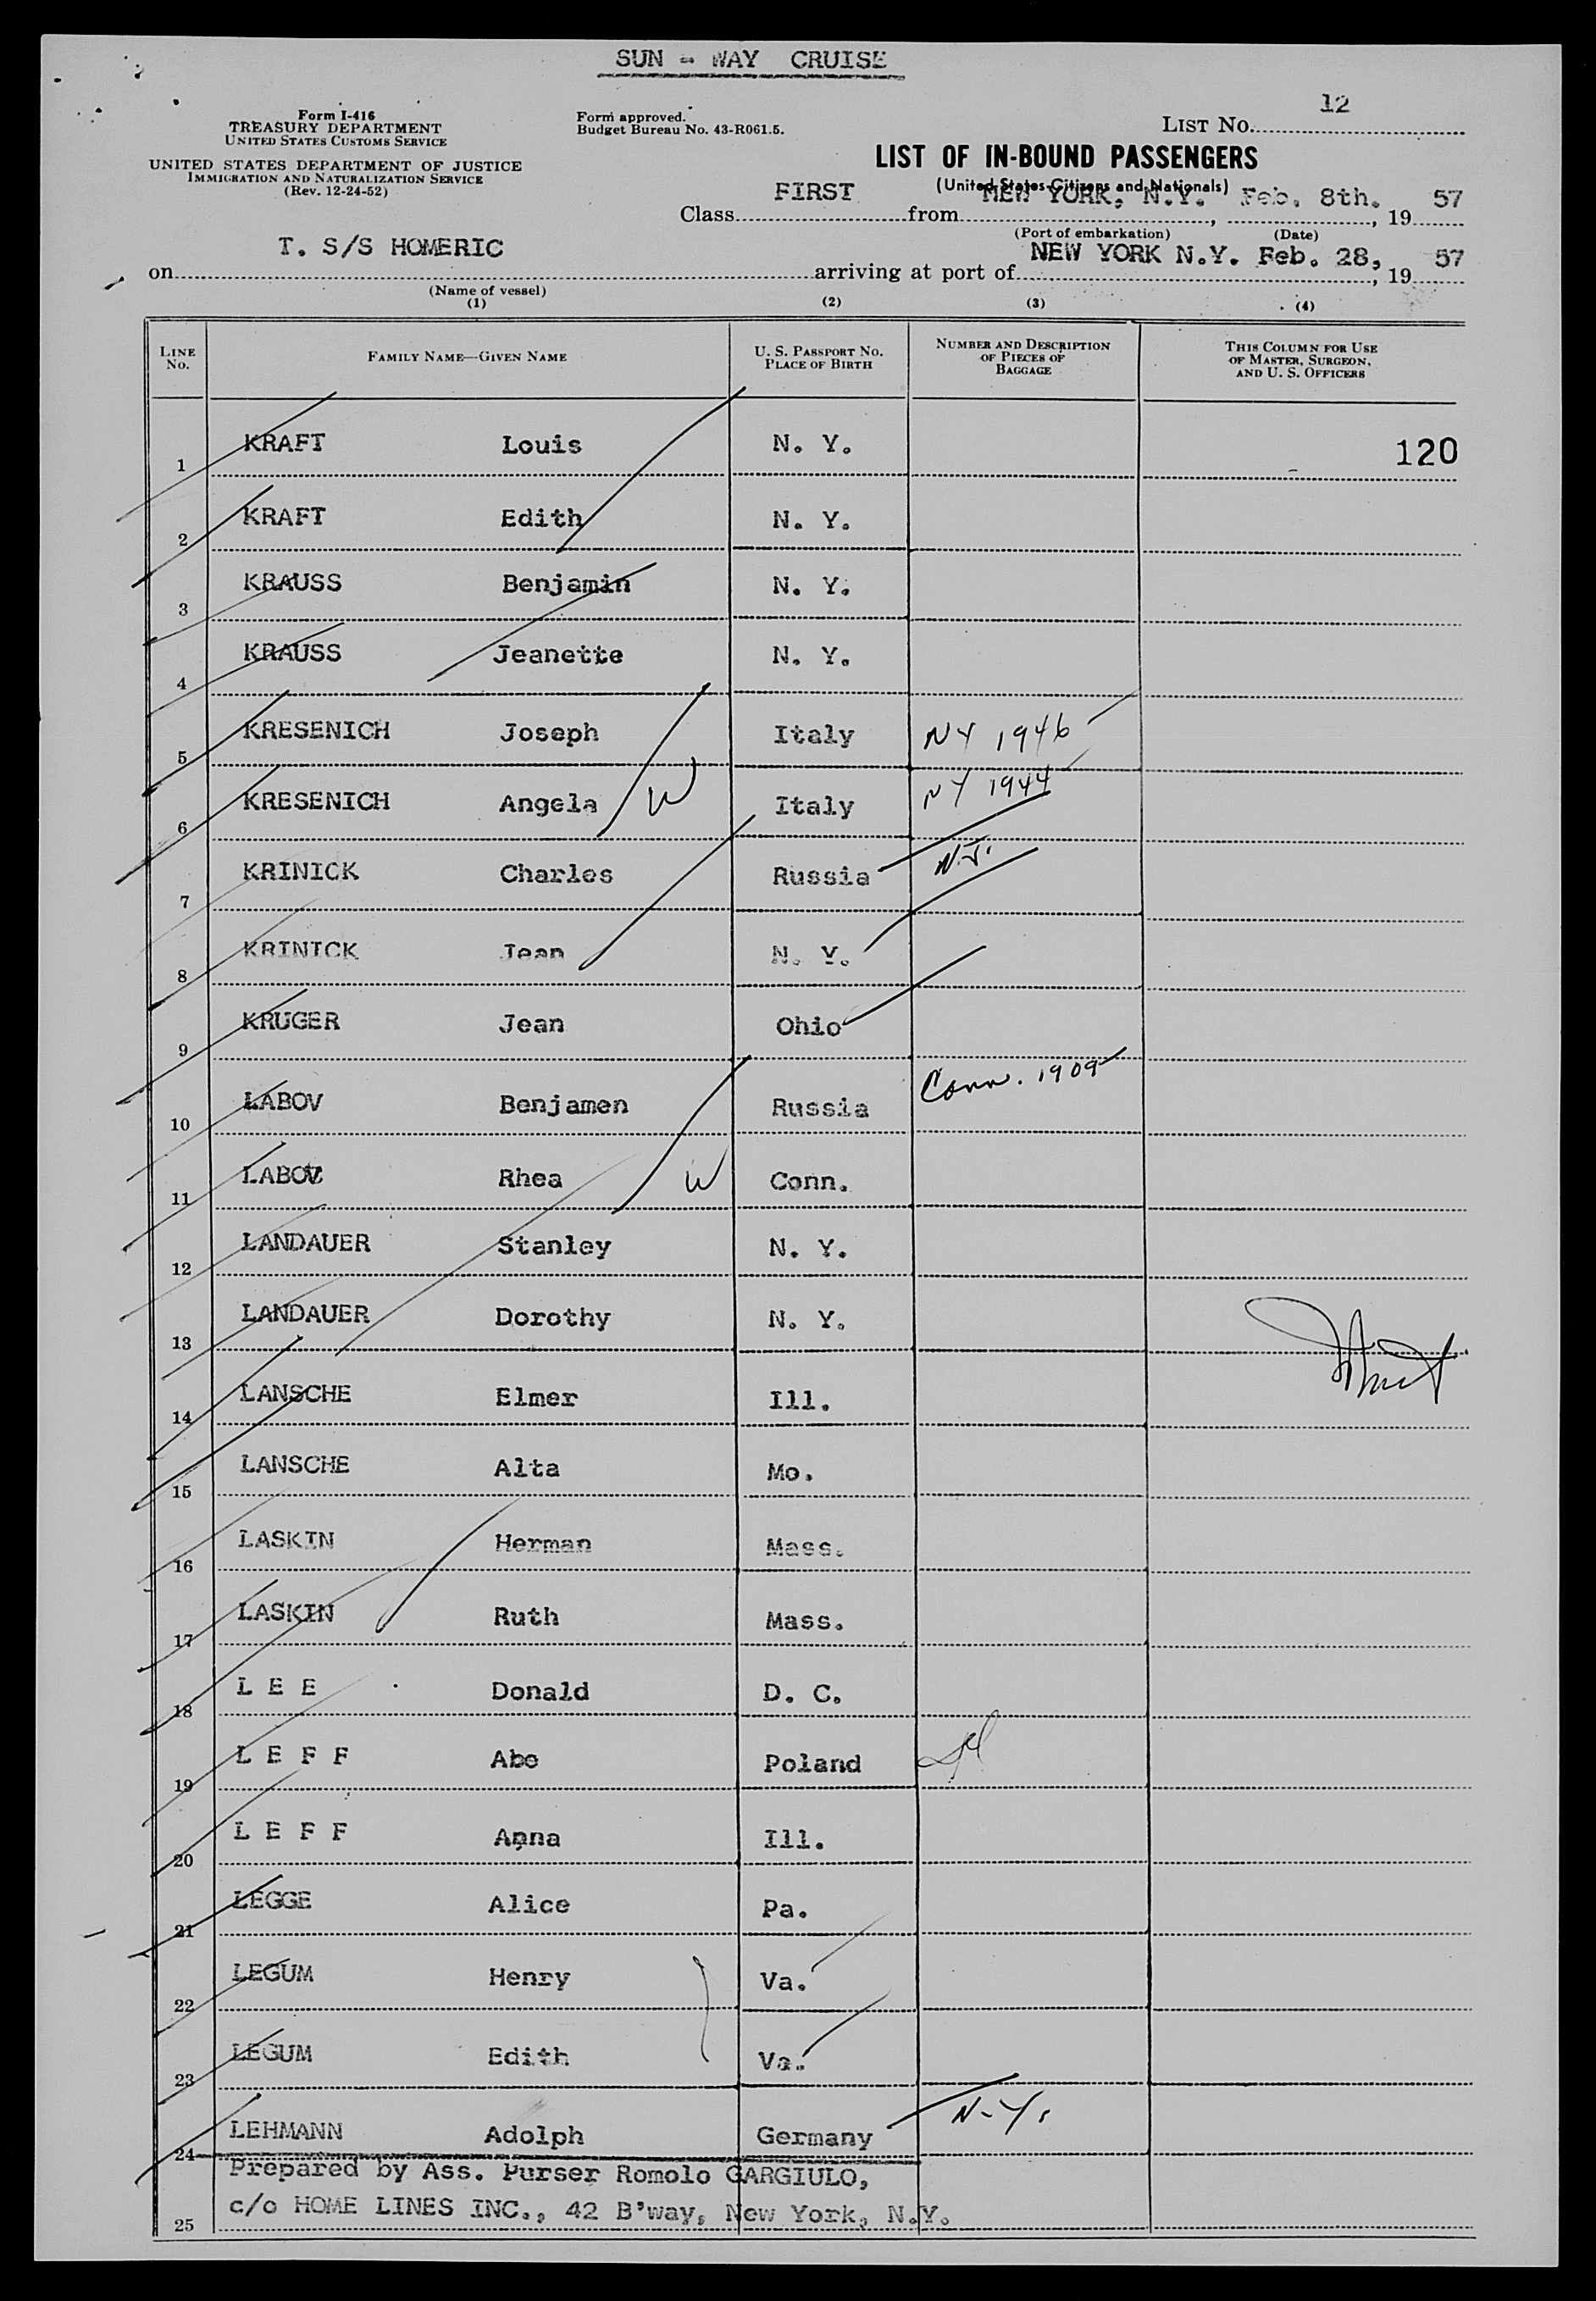 SUN - WAY CRUISE
Form I-416
TREASURY DEPARTMENT
UNITED STATES CUSTOMS SERVICE
UNITED STATES DEPARTMENT OF JUSTICE
IMMIGRATION AND NATURALIZATION SERVICE
(Rev. 12-24-52)
Form approved.
Budget Bureau No. 43-R061.5.
LIST No. 12
LIST OF IN-BOUND PASSENGERS
(United States Citizens and Nationals)
Class FIRST from NEW YORK, N.Y. , Feb. 8th. , 19 57
(Port of embarkation) (Date)
on T. S/S HOMERIC arriving at port of NEW YORK N.Y. Feb. 28, , 19 57
(Name of vessel)
(1) (2) (3) (4)
LINE No. FAMILY NAME—GIVEN NAME U. S. PASSPORT No. PLACE OF BIRTH NUMBER AND DESCRIPTION OF PIECES OF BAGGAGE THIS COLUMN FOR USE OF MASTER, SURGEON, AND U. S. OFFICERS
1 KRAFT Louis N. Y. 120
2 KRAFT Edith N. Y.
3 KRAUSS Benjamin N. Y.
4 KRAUSS Jeanette N. Y.
5 KRESENICH Joseph Italy NY 1946
6 KRESENICH Angela W Italy NY 1944
7 KRINICK Charles Russia N.J.
8 KRINICK Jean N. Y.
9 KRUGER Jean Ohio
10 LABOV Benjamen Russia Conn. 1909
11 LABOV Rhea W Conn.
12 LANDAUER Stanley N. Y.
13 LANDAUER Dorothy N. Y.
14 LANSCHE Elmer Ill.
15 LANSCHE Alta Mo.
16 LASKIN Herman Mass.
17 LASKIN Ruth Mass.
18 L E E Donald D. C.
19 L E F F Abe Poland
20 L E F F Anna Ill.
21 LEGGE Alice Pa.
22 LEGUM Henry Va.
23 LEGUM Edith Va.
24 LEHMANN Adolph Germany N.Y.
Prepared by Ass. Purser Romolo GARGIULO,
25 c/o HOME LINES INC., 42 B'way, New York, N.Y.